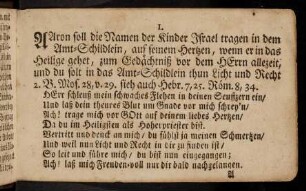 I.
Aaron soll die Namen der Kinder Israel tragen in dem
Amt-Schildlein, auf seinem Hertzen, wenn er in das
Heilige gehet, zum Gedächtniß vor dem HErrn allezeit,
und du solt in das Amt-Schildlein thun Licht und Recht
2. B. Mos. 28, v. 29. sieh auch Hebr. 7, 25. Röm. 8, 34.
HErr schleuß mein schwaches Flehen in deinen Seuffzern ein,
Und laß dein theures Blut um Gnade vor mich schrey'n/
Ach! trage mich vor GOtt auf deinem lieben Hertzen/
Da du im Heiligsten als Hoherpriester bist.
Vertritt und denck an mich/ du fühlst ja meinen Schmertzen/
Und weil nun Licht und Recht in dir zu finden ist/
So leit und führe mich/ du bist nun eingegangen;
Ach! laß mich Freuden-voll nur dir bald nachgelangen.